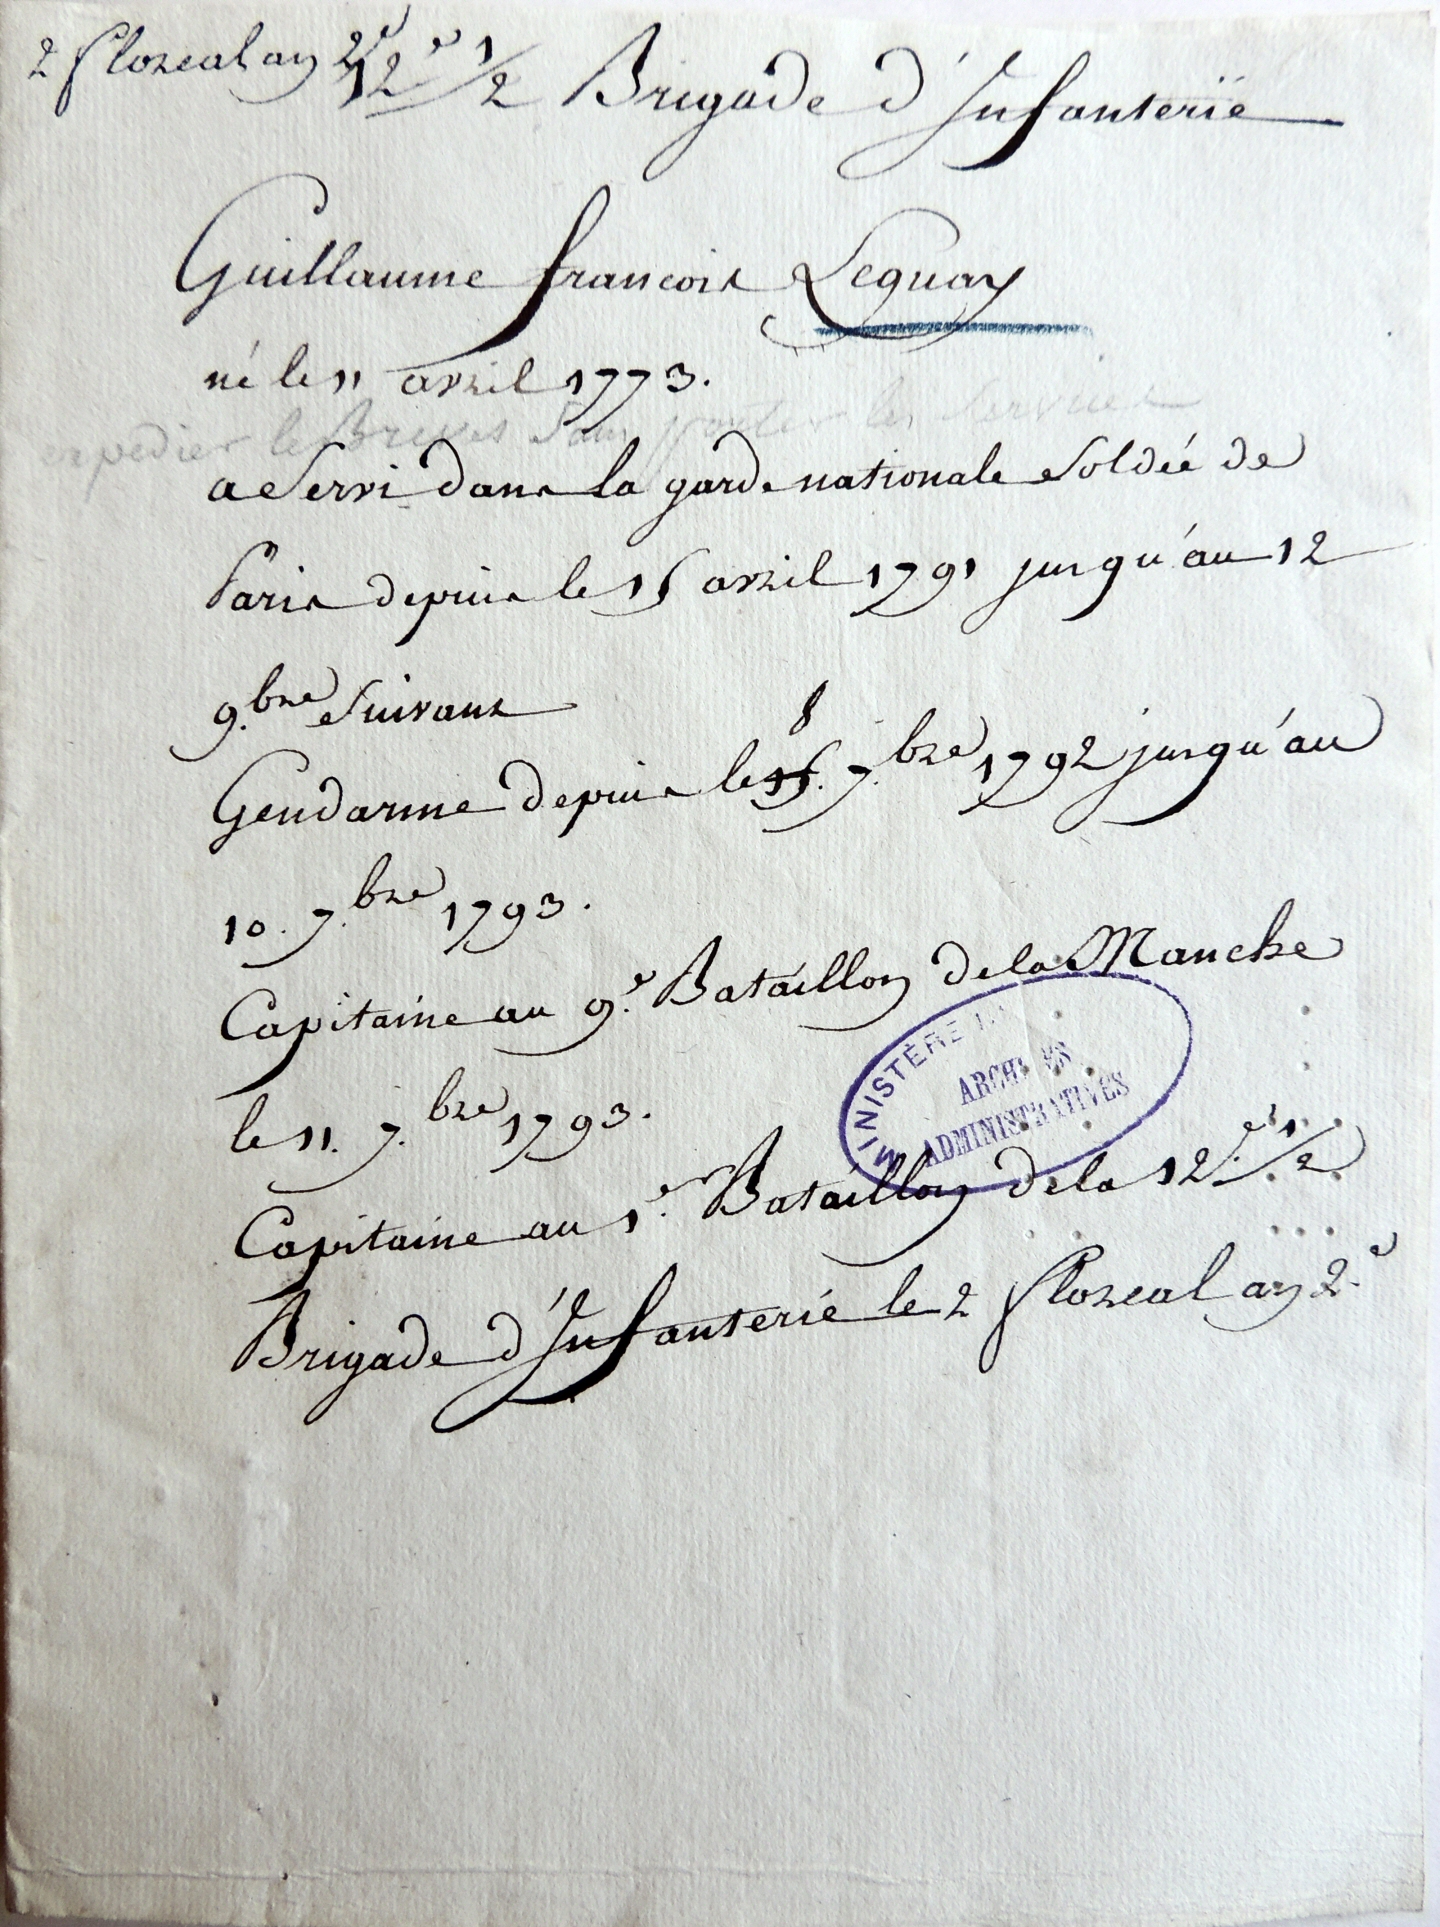 2 floreal an 2e
12e 1/2 Brigade d'Infanterie
Guillaume francois Lequay
né le 11 avril 1773.
expedier le Brevet sans porter les services
a servi dans la garde nationale soldée de
Paris depuis le 15 avril 1791 jusqu'au 12
9.bre suivant
8
Gendarme depuis le 15. 7.bre 1792 jusqu'au
10. 7.bre 1793.
Capitaine au 9.e Bataillon de la Manche
MINISTÈRE
ARCHIVES
ADMINISTRATIVES
le 11. 7.bre 1793.
Capitaine au 1.er Bataillon de la 12.e 1/2
Brigade d'Infanterie le 2 floreal an 2.e